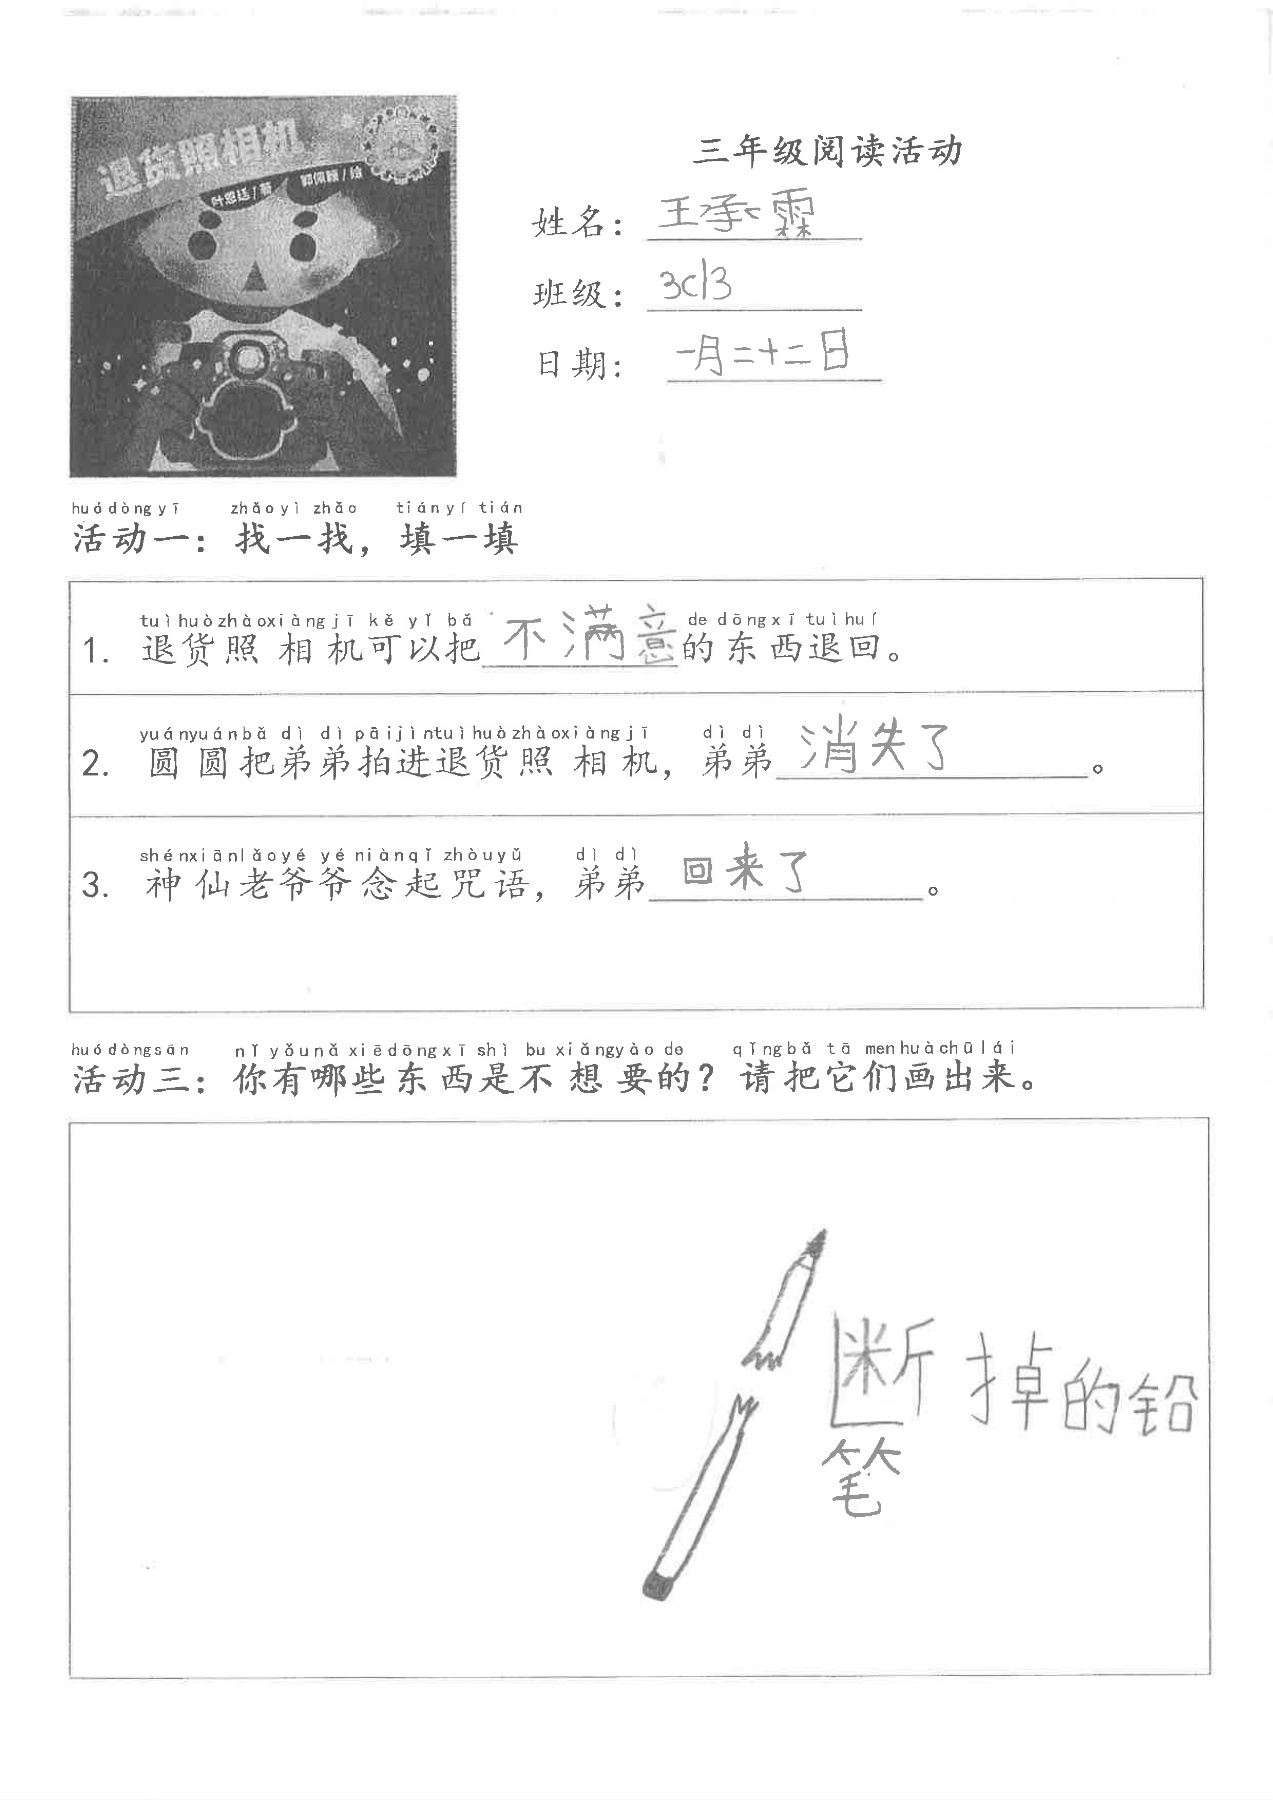 退货照相机
叶愍廷/著 郭佩颖/绘
三年级阅读活动
姓名： 王承霖
班级： 3C13
日期： 一月二十二日
huódòngyī zhǎoyì zhǎo tiányí tián
活动一：找一找，填一填
tuìhuòzhàoxiàngjī kě yǐ bǎ de dōngxītuìhuí
1. 退货照相机可以把不满意的东西退回。
yuányuánbǎ dì dì pāijìntuìhuòzhàoxiàngjī dì dì
2. 圆圆把弟弟拍进退货照相机，弟弟消失了。
shénxiānlǎoyé yé niànqǐ zhòuyǔ dì dì
3. 神仙老爷爷念起咒语，弟弟回来了。
huódòngsān nǐ yǒunǎ xiēdōngxī shì bu xiǎngyào de qǐngbǎ tā menhuàchūlái
活动三：你有哪些东西是不想要的？请把它们画出来。
断掉的铅
笔